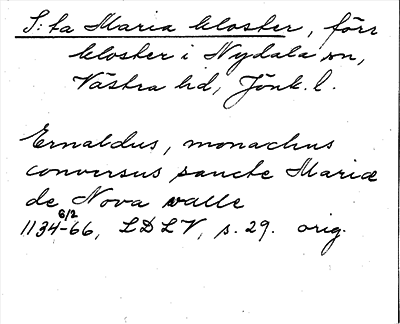 S:ta Maria kloster, förs
kloster i Nydala sn,
Västra hd, Jönk. l.
Ernaldus, monachus
conversus sancte Mariæ
de Nova valle
6/2
1134-66, LDLV, s. 29. orig.